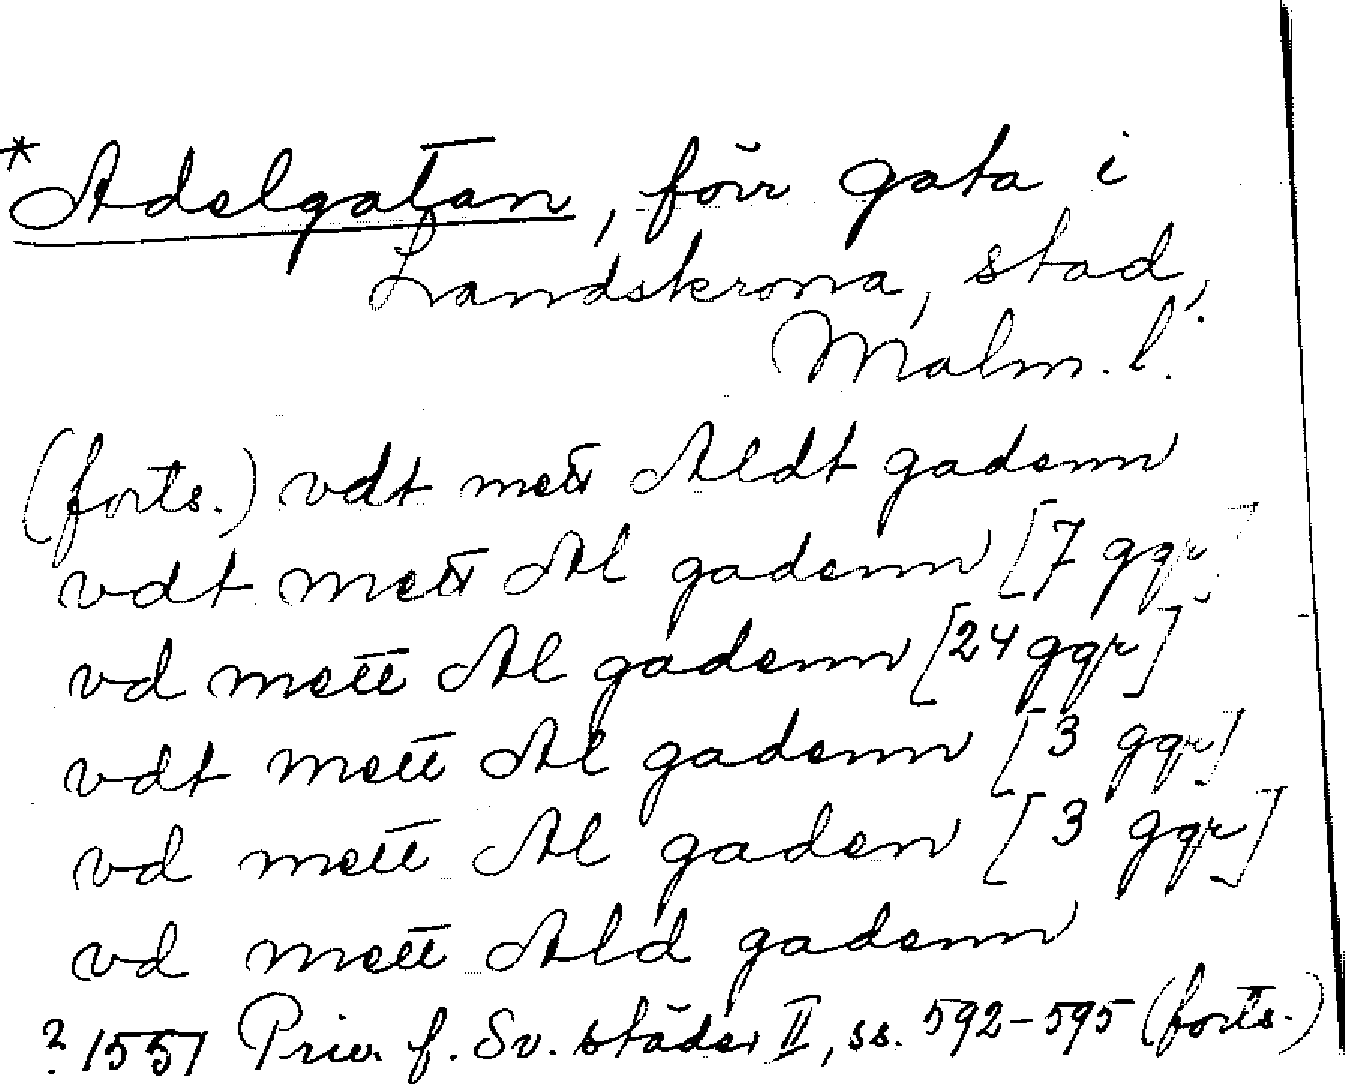 *Adelgatan, förr gata i
Landskrona, stad,
Malm. l.
(forts.) vdt mett Aldt gadenn
vdt mett Al gadenn [7 ggr]
vd mett Al gadenn [24 ggr]
vdt mett Al gadenn [3 ggr]
vd mett Al gaden [3 ggr]
vd mett Ald gadenn
? 1551 Priv. f. Sv. städer II, ss. 592-595 (forts.)